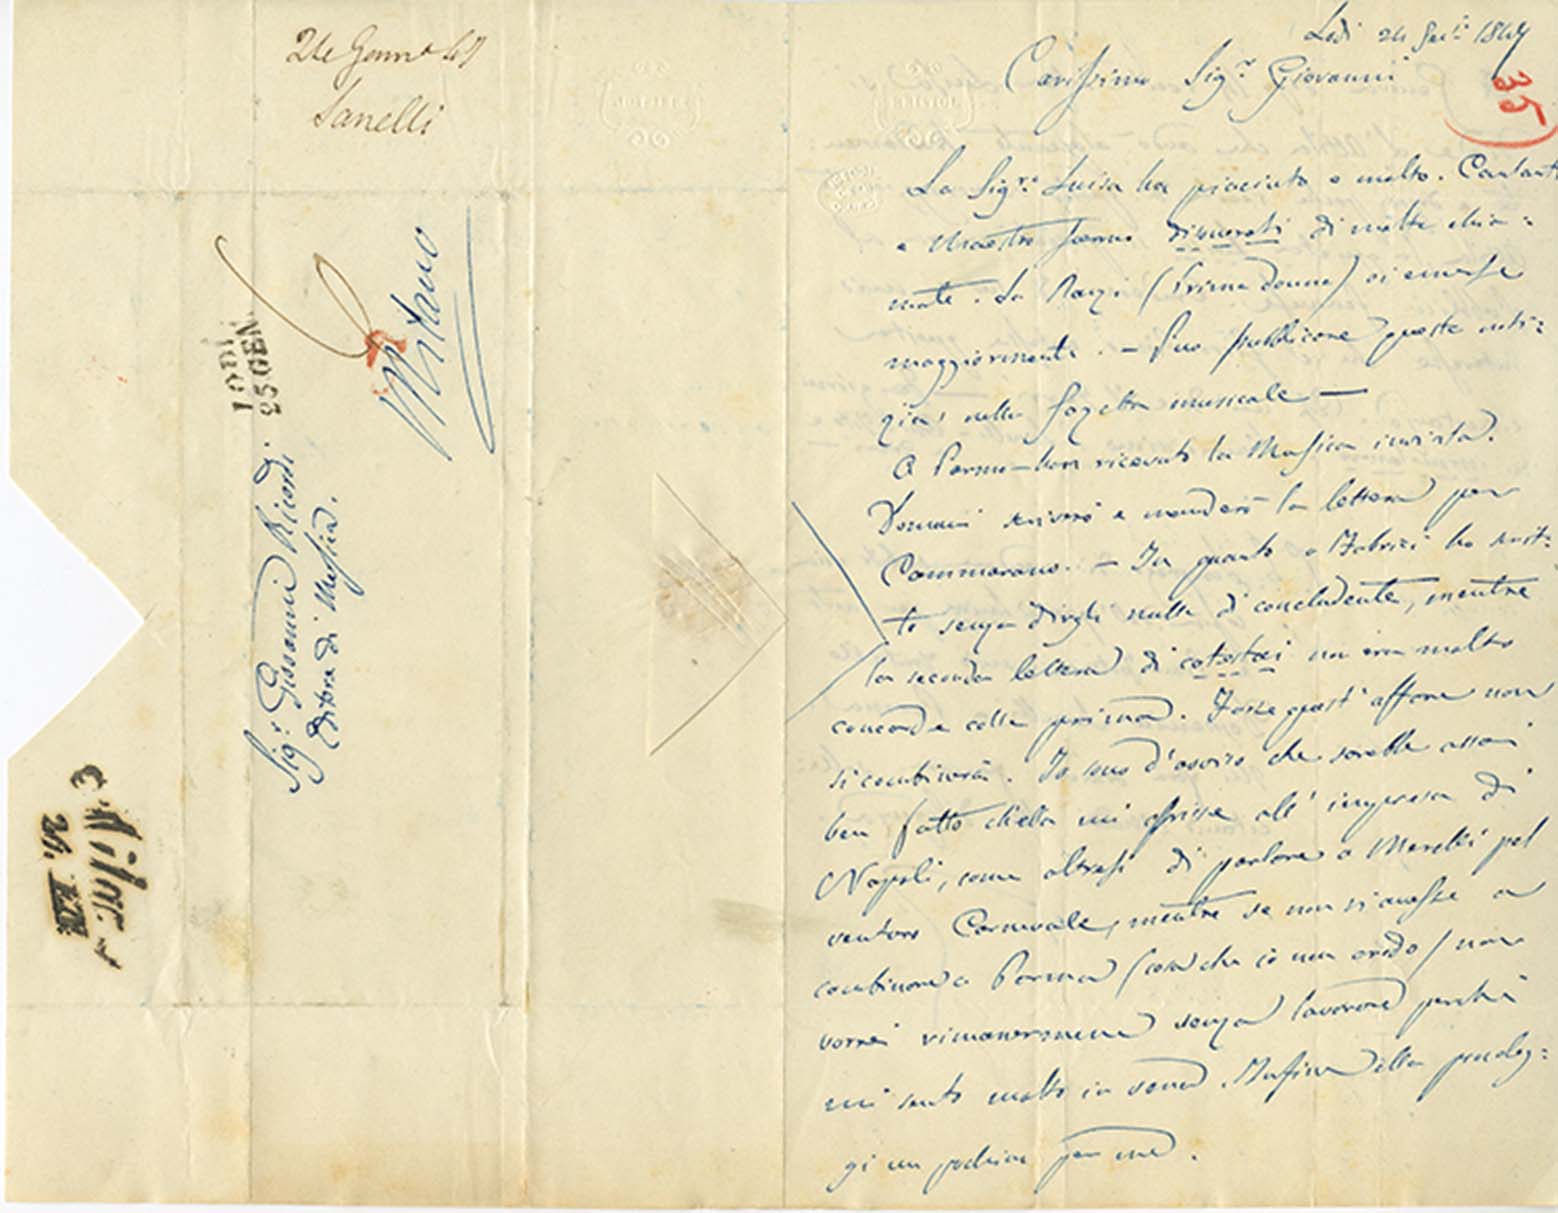 24 Genn.o 47
Sanelli
Milano
LODI
25 GEN.
Sig.r Giovanni Ricordi
Editore di Musica.
Lodi 24 Gen.o 1847
35
Carissimo Sig.r Giovanni
La Sig.ra Luisa ha piaciuto e molto. Cantanti
e Maestro furono di molte chia=
mate. La (Prima donna) vi emerse
maggiormente. — Può pubblicare queste noti=
zie nella Gazzetta musicale —
A Parma han ricevuto la Musica inviata.
Domani scriverò e manderò la lettera per
Cammarano. — In quanto a Fabrici ho scrit=
to senza dirgli nulla di concludente, mentre
la seconda lettera di costui non era molto
concorde colla prima. Forse quest'affare non
si combinerà. Io sono d'avviso che sarebbe assai
ben fatto ch'ella mi offrisse all'impresa di
Napoli, come altresì di parlare a Merelli pel
venturo Carnevale, mentre se non si avesse a
combinare a Parma (cosa che io non credo) non
vorrei rimanermene senza lavorare perchè
mi sento molto in vena. Insomma ella prodig=
gi un pochino per me.